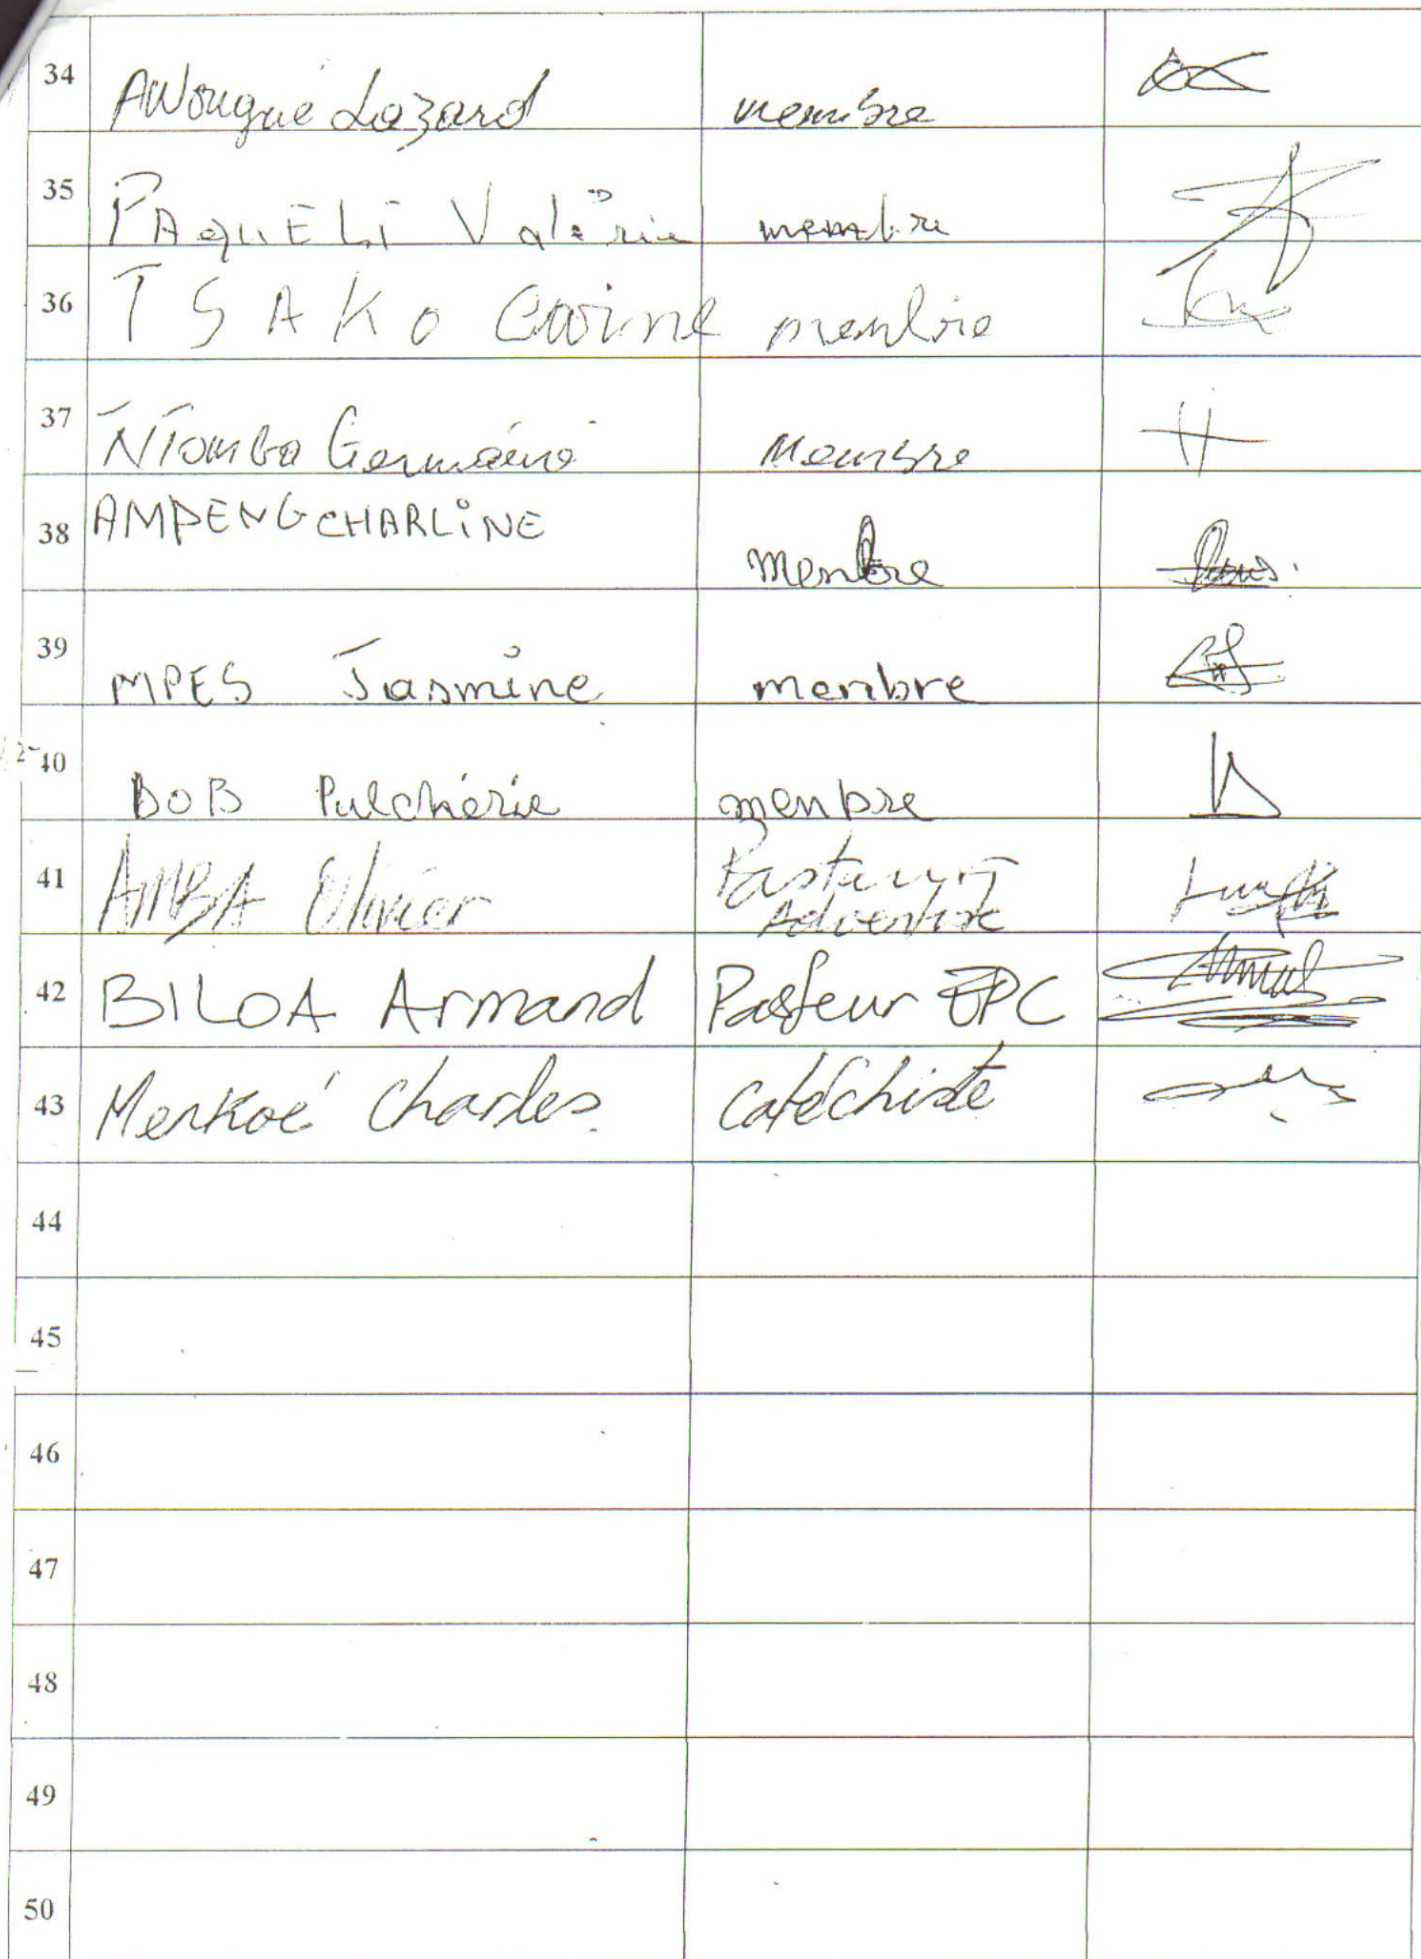 34 AWougué Lazard membre
35 PAQUELI Valérie membre
36 TSAKO Corine membre
37 NTomba Germaine Membre
38 AMPENG CHARLINE
Menbre
39 MPES Jasmine menbre
40 BOB Pulchérie menbre
41 AMBA Olivier Pasteur
Adventiste
42 BILOA Armand Pasteur EPC
43 Menkoé Charles. Catéchiste
44
45
46
47
48
49
50